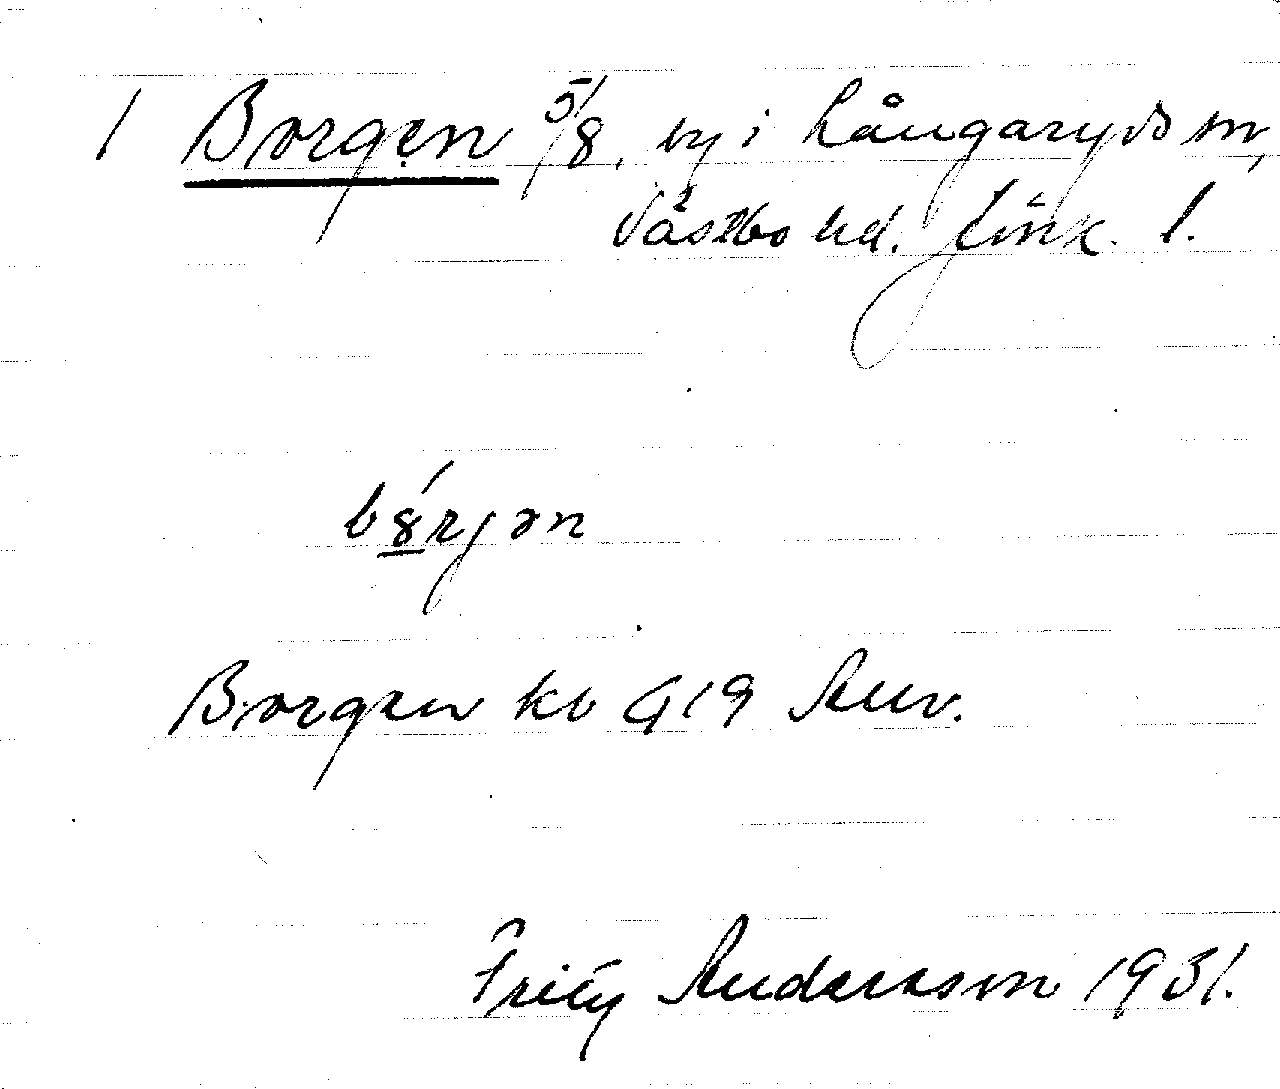 1 Borgen 5/8, by i Långaryds sn,
Västbo hd. Jönk. l.
bȣ́rjən
Borgen kb G19 Anv.
Fritz Andersson 1931.